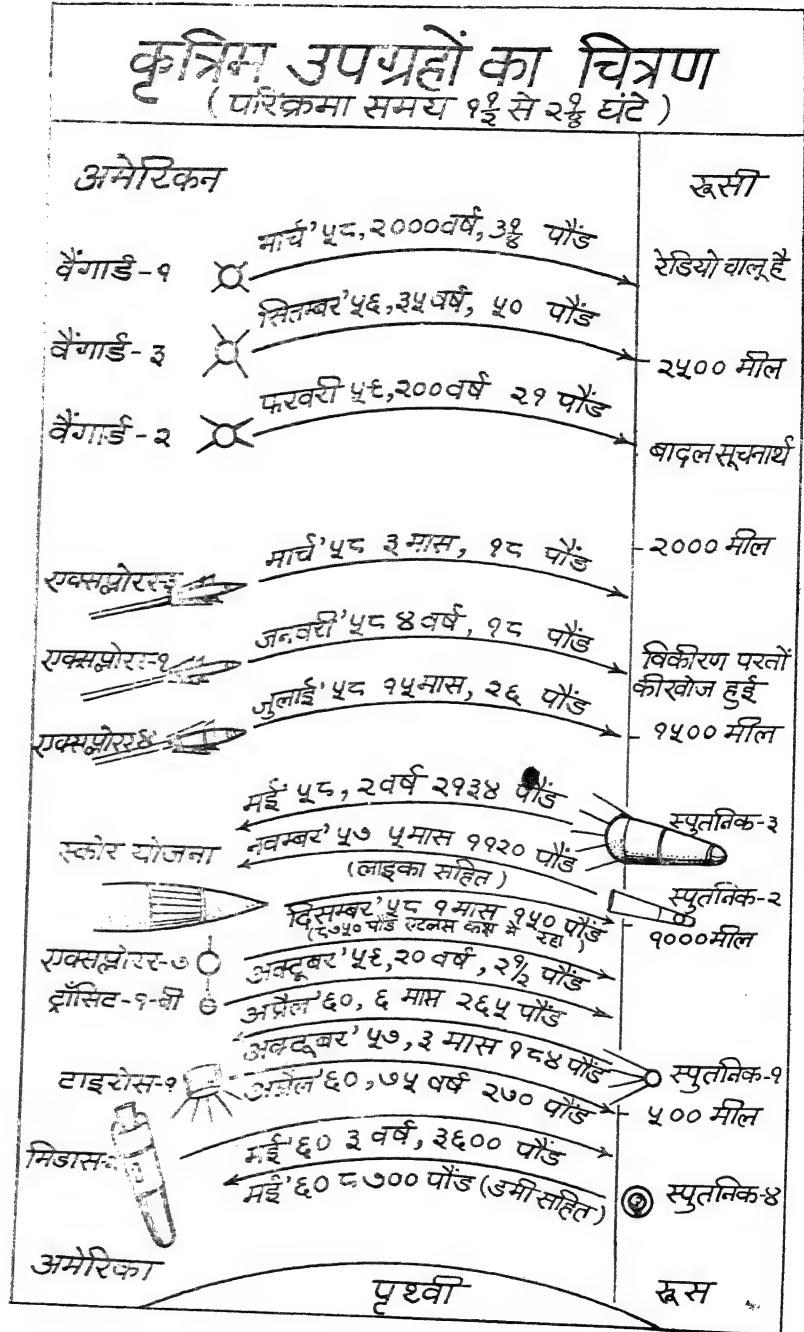 कृत्रिम उपग्रहों का चित्रण
( परिक्रमा समय ११/२ से २१/४ घंटे )
अमेरिकन
रूसी
मार्च'५८, २००० वर्ष, ३१/४ पौंड
वैंगार्ड-१
रेडियो चालू है
सितम्बर'५६, ३५ वर्ष, ५० पौंड
वैंगार्ड-३
२५०० मील
फरवरी ५९, २०० वर्ष २१ पौंड
वैंगार्ड-२
बादल सूचनार्थ
२००० मील
मार्च'५८ ३ मास, १८ पौंड
एक्सप्लोरर-३
जनवरी'५८ ४ वर्ष, १८ पौंड
एक्सप्लोरर-१
विकीरण परतों
की खोज हुई
जुलाई'५८ १५ मास, २६ पौंड
एक्सप्लोरर४
१५०० मील
मई'५८, २ वर्ष २१३४ पौंड
स्पुतनिक-३
स्कोर योजना
नवम्बर'५७ ५ मास ११२० पौंड
(लाइका सहित)
स्पुतनिक-२
दिसम्बर'५८ १ मास १५० पौंड
(८७५० पौंड एटलस कक्ष में रहा)
१००० मील
एक्सप्लोरर-७
अक्टूबर'५९, २० वर्ष, २१/२ पौंड
ट्राँसिट-१-बी
अप्रैल'६०, ६ मास २६५ पौंड
अक्टूबर'५७, ३ मास १८४ पौंड
स्पुतनिक-१
टाइरोस-१
अप्रैल'६०, ७५ वर्ष २७० पौंड
५०० मील
मई'६० ३ वर्ष, ३६०० पौंड
मिडास-
मई'६० ८७०० पौंड (डमी सहित)
स्पुतनिक-४
अमेरिका
पृथ्वी
रूस